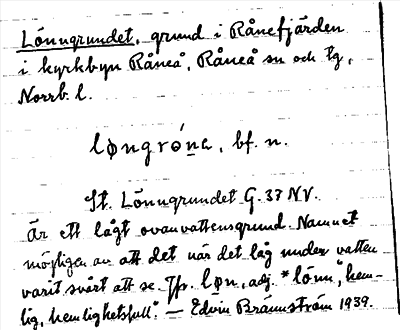 Lönngrundet, grund i Rånefjärden
i kyrkbyn Råneå, Råneå sn och tg,
Norrb. l.
løngrónə, bf. n.
St. Lönngrundet G. 33 NV.
Är ett lågt ovanvattensgrund. Namnet
möjligen av att det när det låg under vatten
varit svårt att se. Jfr. løn, adj. "lönn", hem-
lig, hemlighetsfull". — Edvin Brännström 1939.